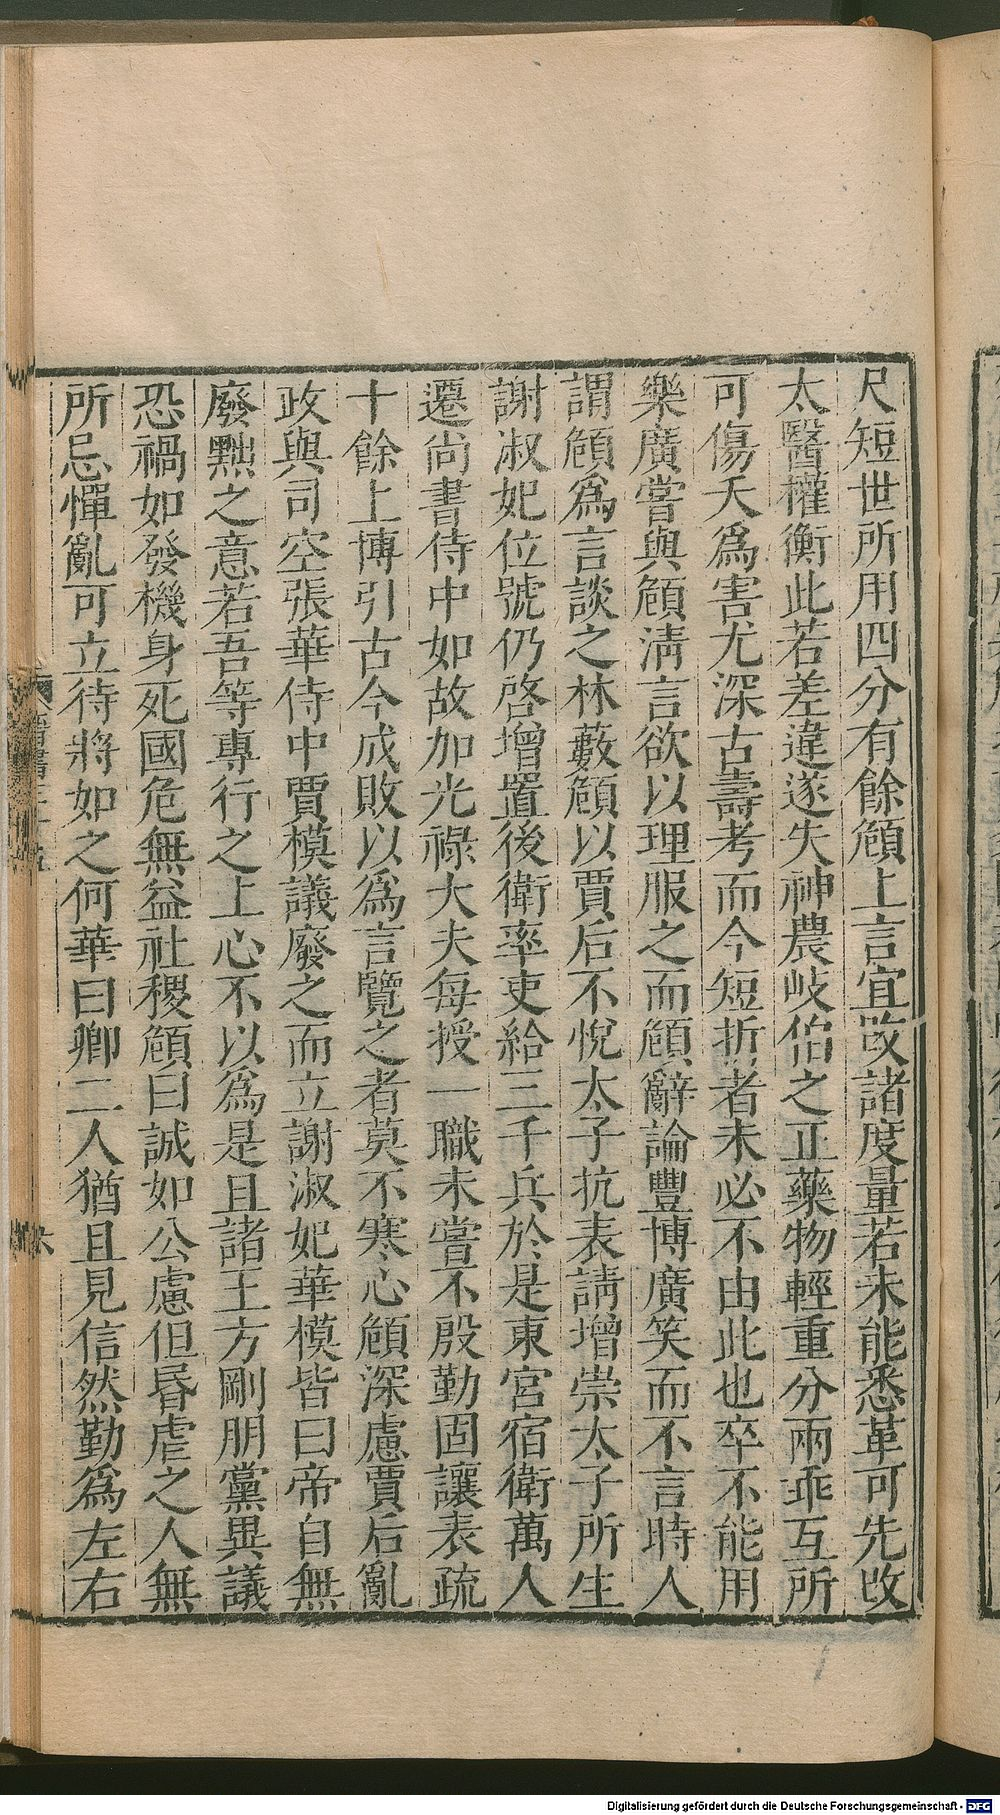 尺短世所用四分有餘頠上言宜改諸度量若未能悉革可先改
太醫權衡此若差違遂失神農岐伯之正藥物輕重分兩乖互所
可傷夭爲害尤深古壽考而今短折者未必不由此也卒不能用
樂廣嘗與頠淸言欲以理服之而頠辭論豐博廣笑而不言時人
謂頠爲言談之林藪頠以賈后不悅太子抗表請增崇太子所生
謝淑妃位號仍啓增置後衛率吏給三千兵於是東宮宿衛萬人
遷尚書侍中如故加光祿大夫每授一職未嘗不殷勤固讓表疏
十餘上博引古今成敗以爲言覽之者莫不寒心頠深慮賈后亂
政與司空張華侍中賈模議廢之而立謝淑妃華模皆曰帝自無
廢黜之意若吾等專行之上心不以爲是且諸王方剛朋黨異議
恐禍如發機身死國危無益社稷頠曰誠如公慮但昏虐之人無
所忌憚亂可立待將如之何華曰卿二人猶且見信然勤爲左右
Digitalisierung gefördert durch die Deutsche Forschungsgemeinschaft - DFG